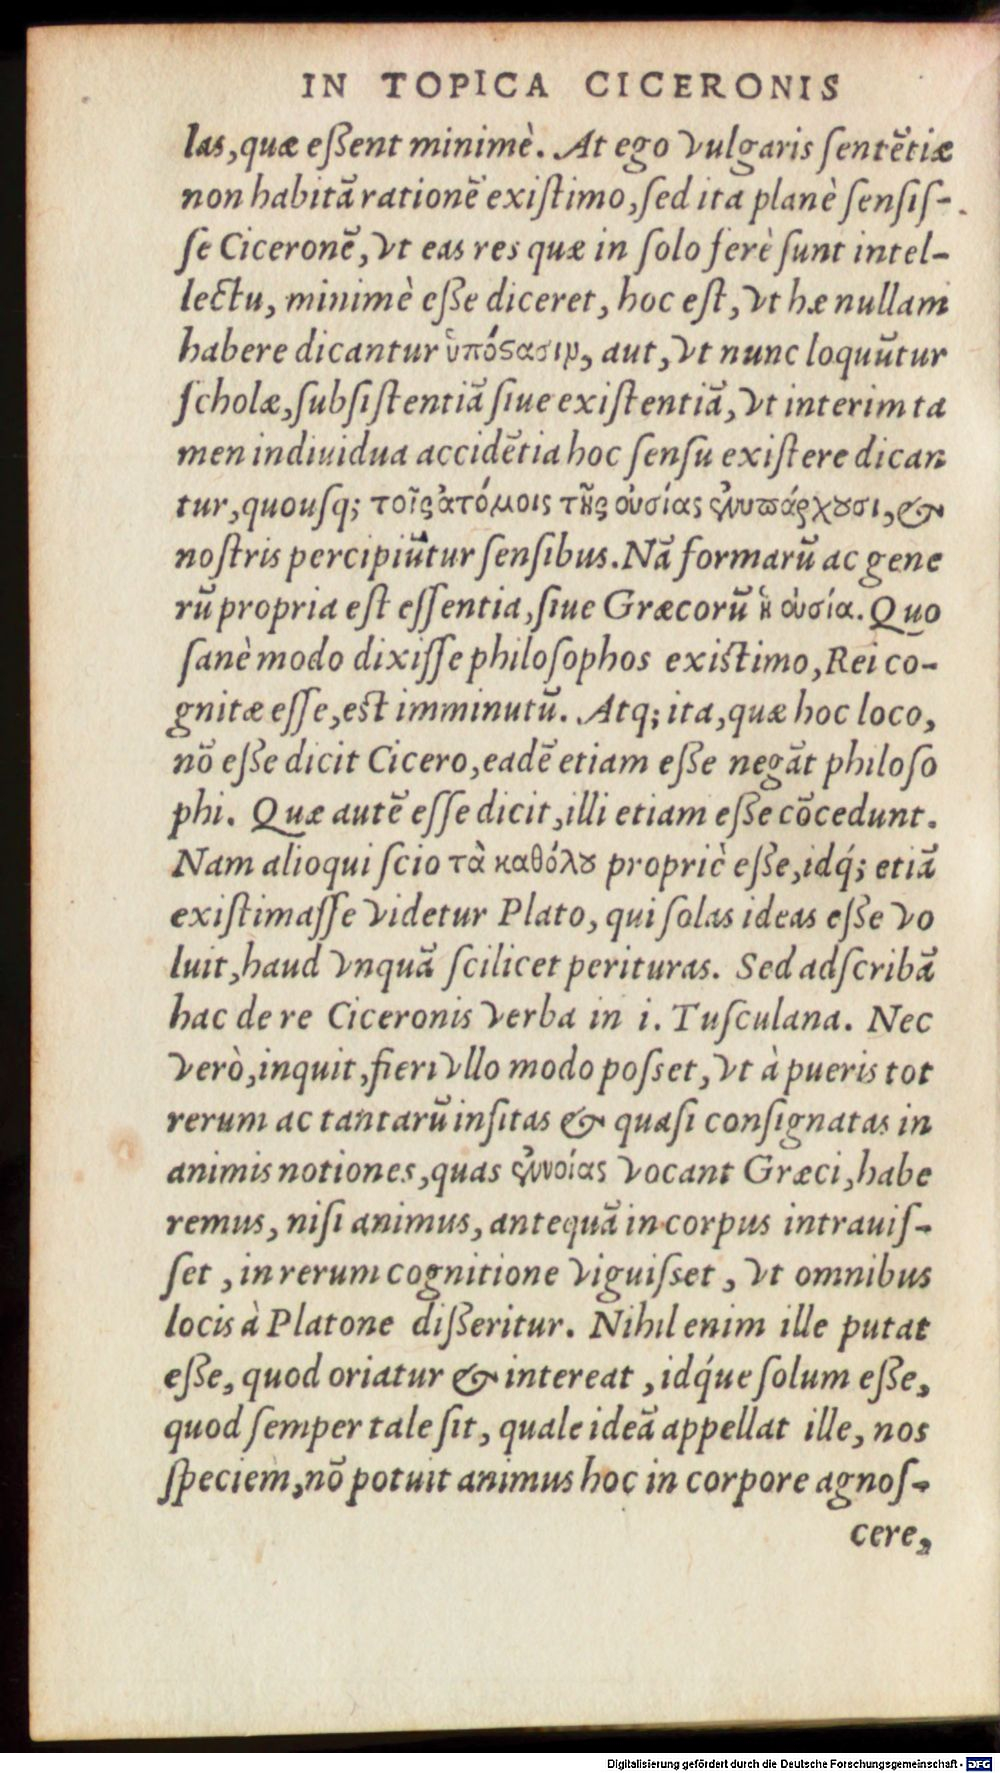 IN TOPICA CICERONIS
las, quæ eſſent minimè. At ego vulgaris ſentẽtiæ
non habitã rationẽ exiſtimo, ſed ita planè ſenſiſ-
ſe Ciceronẽ, vt eas res quæ in ſolo ferè ſunt intel-
lectu, minimè eſſe diceret, hoc eſt, vt hæ nullam
habere dicantur ὑπόϛασιν, aut, vt nunc loquũtur
ſcholæ, ſubſiſtentiã ſiue exiſtentiã, vt interim ta
men indiuidua accidẽtia hoc ſenſu exiſtere dican
tur, quouſq; τοῖς ἀτόμοις τῆς οὐσίας ἐνυπάρχουσι, &
noſtris percipiũtur ſenſibus. Nã formarũ ac gene
rũ propria eſt eſſentia, ſiue Græcorũ ἡ οὐσία. Quo
ſanè modo dixiſſe philoſophos exiſtimo, Rei co-
gnitæ eſſe, eſt imminutũ. Atq; ita, quæ hoc loco,
nõ eſſe dicit Cicero, eadẽ etiam eſſe negãt philoſo
phi. Quæ autẽ eſſe dicit, illi etiam eſſe cõcedunt.
Nam alioqui ſcio τὰ καθόλου propriè eſſe, idq́; etiã
exiſtimaſſe videtur Plato, qui ſolas ideas eſſe vo
luit, haud vnquã ſcilicet perituras. Sed adſcribã
hac de re Ciceronis verba in i. Tuſculana. Nec
verò, inquit, fieri vllo modo poſſet, vt à pueris tot
rerum ac tantarũ inſitas & quaſi conſignatas in
animis notiones, quas ἐννοίας vocant Græci, habe
remus, niſi animus, antequã in corpus intrauiſ-
ſet, in rerum cognitione viguiſſet, vt omnibus
locis à Platone diſſeritur. Nihil enim ille putat
eſſe, quod oriatur & intereat, idq́ue ſolum eſſe,
quod ſemper tale ſit, quale ideã appellat ille, nos
ſpeciem, nõ potuit animus hoc in corpore agnoſ-
cere,
Digitalisierung gefördert durch die Deutsche Forschungsgemeinschaft - DFG